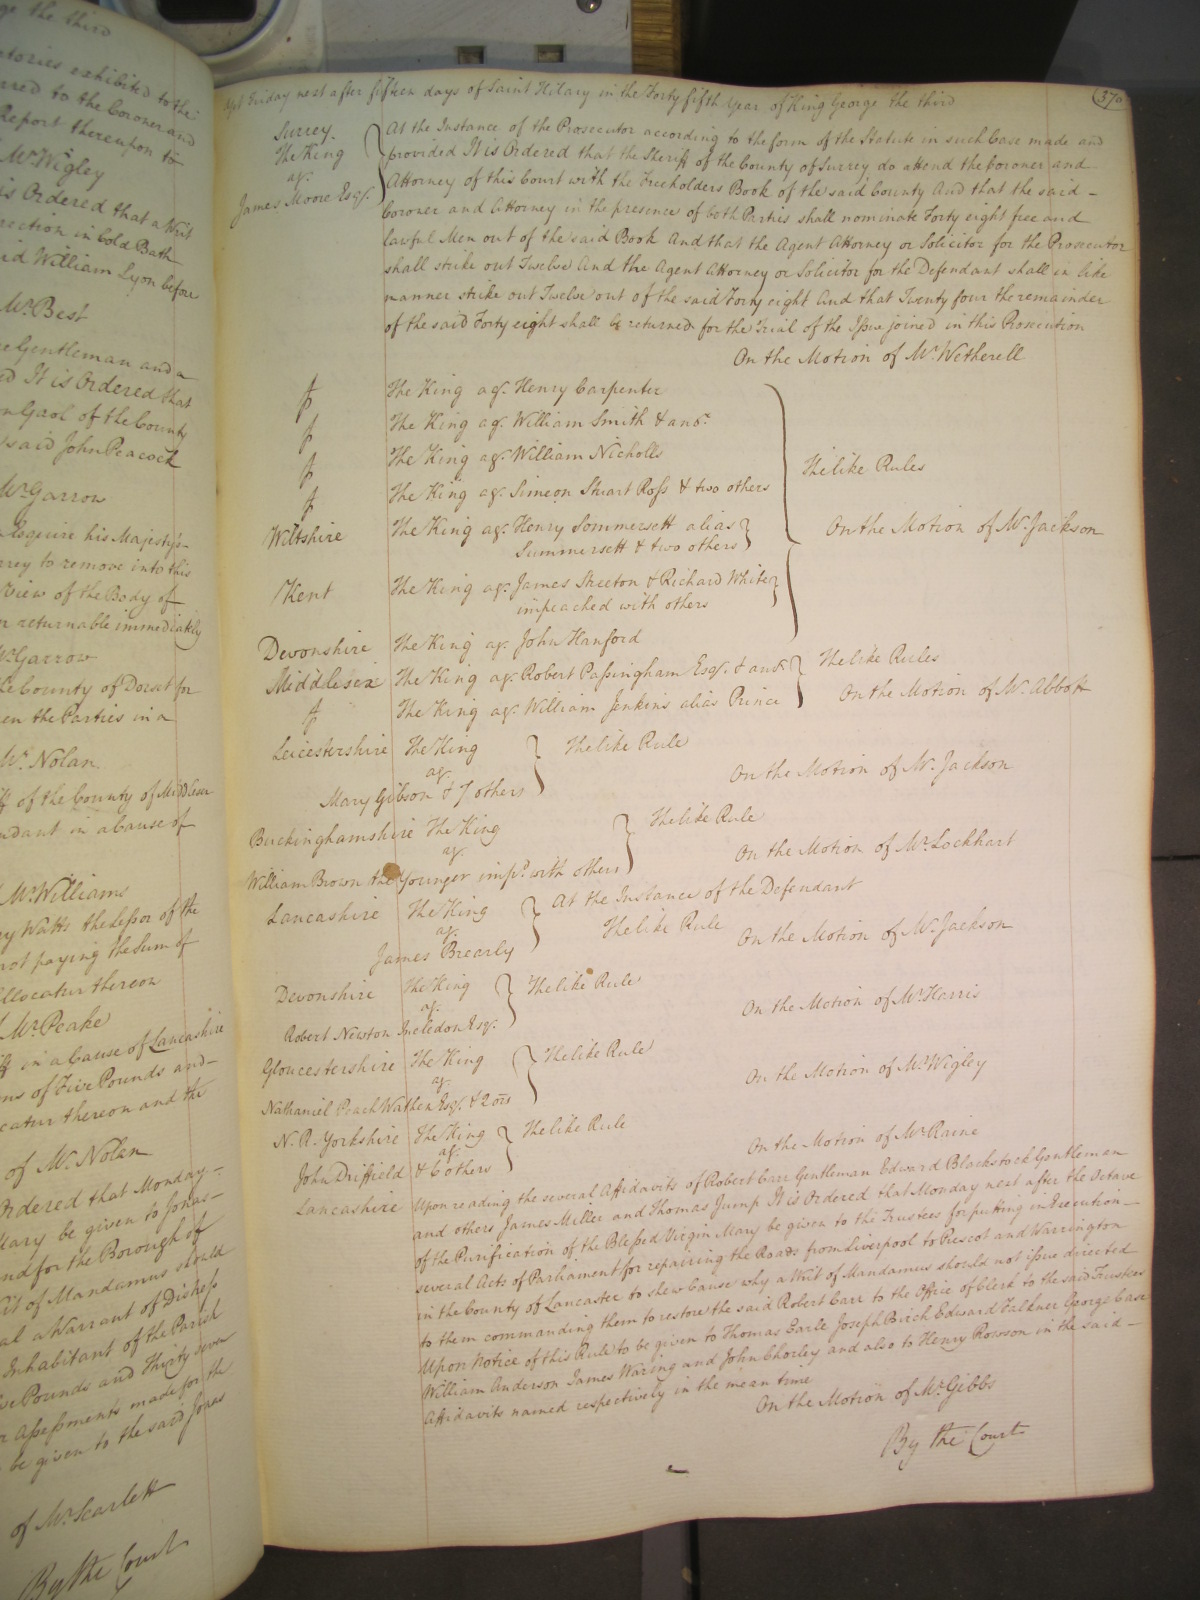 ge the third
atories exhibited to the
rred to the Coroner and
Report thereupon to
Mr. Wigley
is Ordered that a Writ
rection in Cold Bath
aid William Lyon before
Mr. Best
Gentleman and a
ed It is Ordered that
n Gaol of the County
said John Peacock
Mr. Garrow
Esquire his Majesty's
rrey to remove into this
View of the Body of
r returnable immediately
Mr. Garrow
he County of Dorset for
en the Parties in a
Mr. Nolan.
ff of the County of Middlesex
ndant in a Cause of
Mr. Williams
ry Watts the Lessor of the
not paying the Sum of
allocatur thereon
Mr. Peake
ff in a Cause of Lancashire
ms of Five Pounds and
catur thereon and the
of Mr. Nolan
Ordered that Monday
Mary be given to Jonas
nd for the Borough of
rit of Mandamus should
al a Warrant of Distress
Inhabitant of the Parish
ve Pounds and Thirty seven
r Assessments made for the
be given to the said Jonas
of Mr. Scarlett
By the Court
Yet Friday next after fifteen days of Saint Hilary in the Forty fifth Year of King George the third
370
Surrey.
The King
agt.
James Moore Esqr.
At the Instance of the Prosecutor according to the form of the Statute in such Case made and
provided It is Ordered that the Sheriff of the County of Surrey do attend the Coroner and
Attorney of this Court with the Freeholders Book of the said County And that the said
Coroner and Attorney in the presence of both Parties shall nominate Forty eight free and
lawful Men out of the said Book And that the Agent Attorney or Solicitor for the Prosecutor
shall strike out Twelve And the Agent Attorney or Solicitor for the Defendant shall in like
manner strike out Twelve out of the said Forty eight And that Twenty four the remainder
of the said Forty eight shall be returned for the Trial of the Issue joined in this Prosecution
On the Motion of Mr. Wetherell
The King agt. Henry Carpenter
The King agt. William Smith & anor.
The King agt. William Nicholls
The King agt. Simeon Stuart Ross & two others
The like Rules
Wiltshire The King agt. Henry Sommersett alias
Summersett & two others
On the Motion of Mr. Jackson
Kent The King agt. James Skeeton & Richard White
impeached with others
Devonshire The King agt. John Hanford
Middlesex The King agt. Robert Passingham Esqr. & anor.
The like Rules
The King agt. William Jenkins alias Prince
On the Motion of Mr. Abbott
Leicestershire The King
agt.
Mary Gibson & 7 others
The like Rule
On the Motion of Mr. Jackson
Buckinghamshire The King
agt.
William Brown the Younger impd. with others
The like Rule
On the Motion of Mr. Lockhart
Lancashire The King
agt.
James Brearly
At the Instance of the Defendant
The like Rule
On the Motion of Mr. Jackson
Devonshire The King
agt.
Robert Newton Incledon Esqr.
The like Rule
On the Motion of Mr. Harris
Gloucestershire The King
agt.
Nathaniel Peach Wathen Esqr. & 2 ors
The like Rule
On the Motion of Mr. Wigley
N. R. Yorkshire The King
agt.
John Driffield & 6 others
The like Rule
On the Motion of Mr. Raine
Lancashire Upon reading the several Affidavits of Robert Carr Gentleman Edward Blackstock Gentleman
and others James Miller and Thomas Jump It is Ordered that Monday next after the Octave
of the Purification of the Blessed Virgin Mary be given to the Trustees for putting in Execution
several Acts of Parliament for repairing the Roads from Liverpool to Prescot and Warrington
in the County of Lancaster to shew Cause why a Writ of Mandamus should not issue directed
to them commanding them to restore the said Robert Carr to the Office of Clerk to the said Trustees
Upon Notice of this Rule to be given to Thomas Earle Joseph Birch Edward Falkner George Case
William Anderson James Waring and John Chorley and also to Henry Rowson in the said
Affidavits named respectively in the mean time
On the Motion of Mr. Gibbs
By the Court